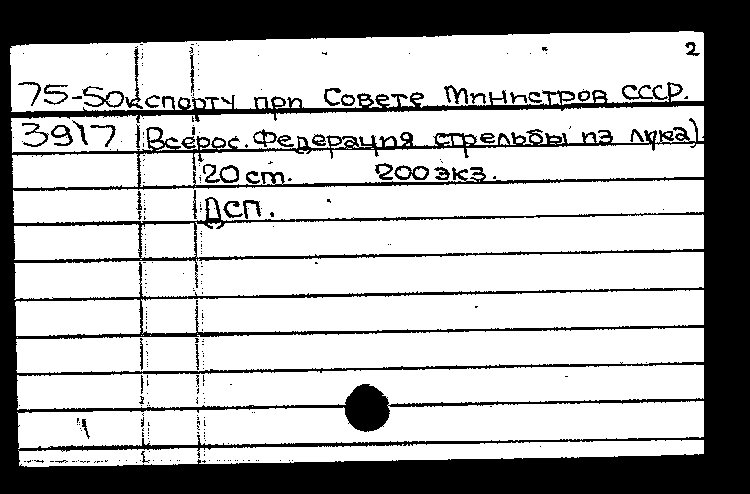 2
75-50к спорту при Совете Министров СССР.
3917 Всерос. Федерация стрельбы из лука)
20 ст. 200 экз.
ДСП.